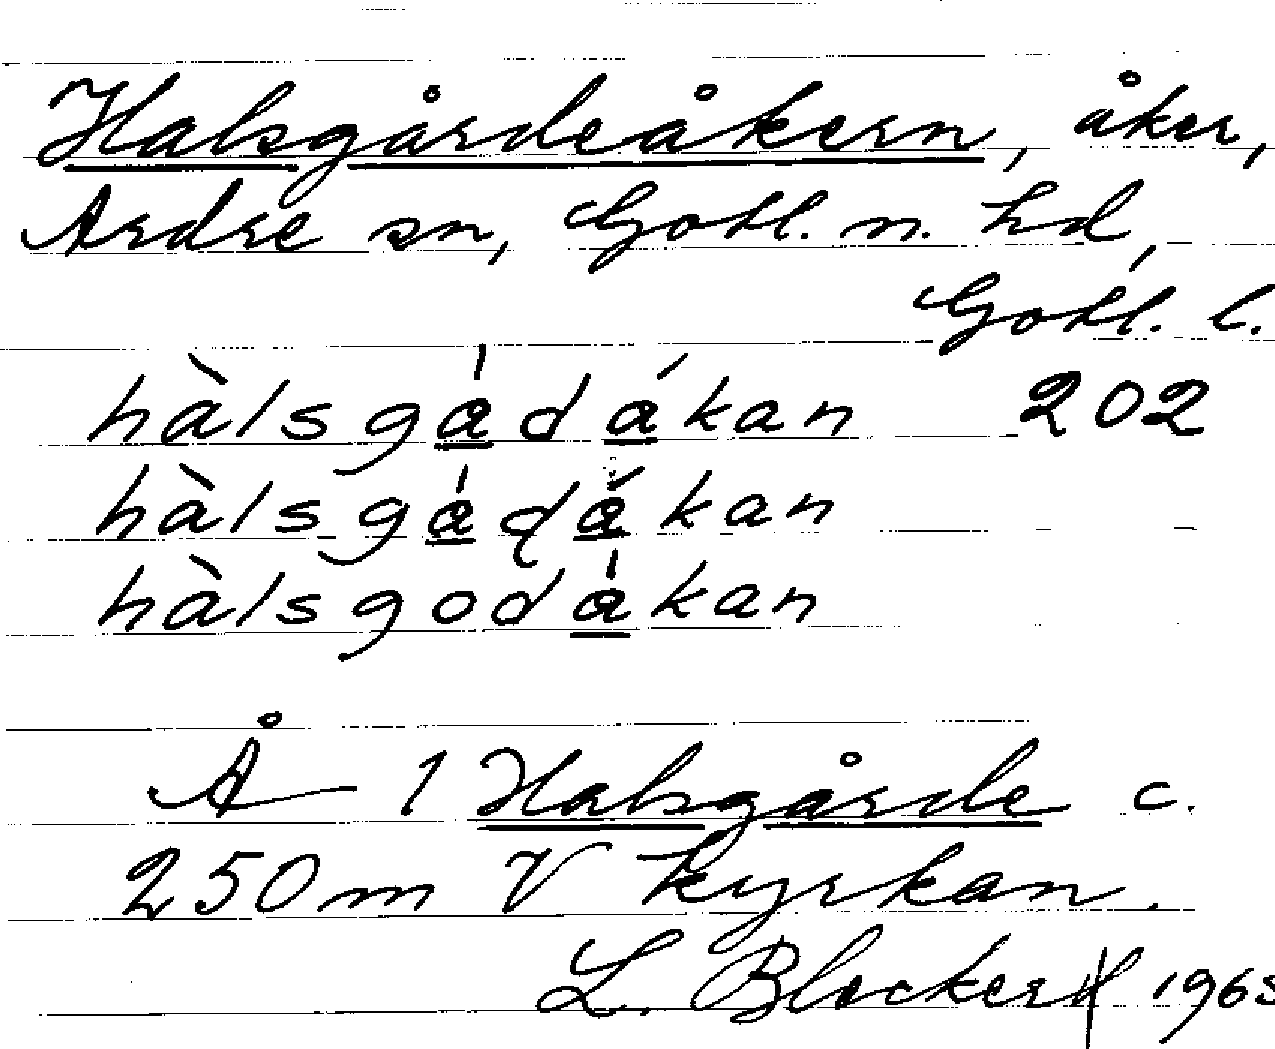 Halsgårdeåkern, åker,
Ardre sn, Gotl. n. hd,
Gotl. l.
hàlsgádákan 202
hàlsgádákan
hàlsgodákan
Å 1 Halsgårde c.
250 m V kyrkan.
L. Blocker 1965